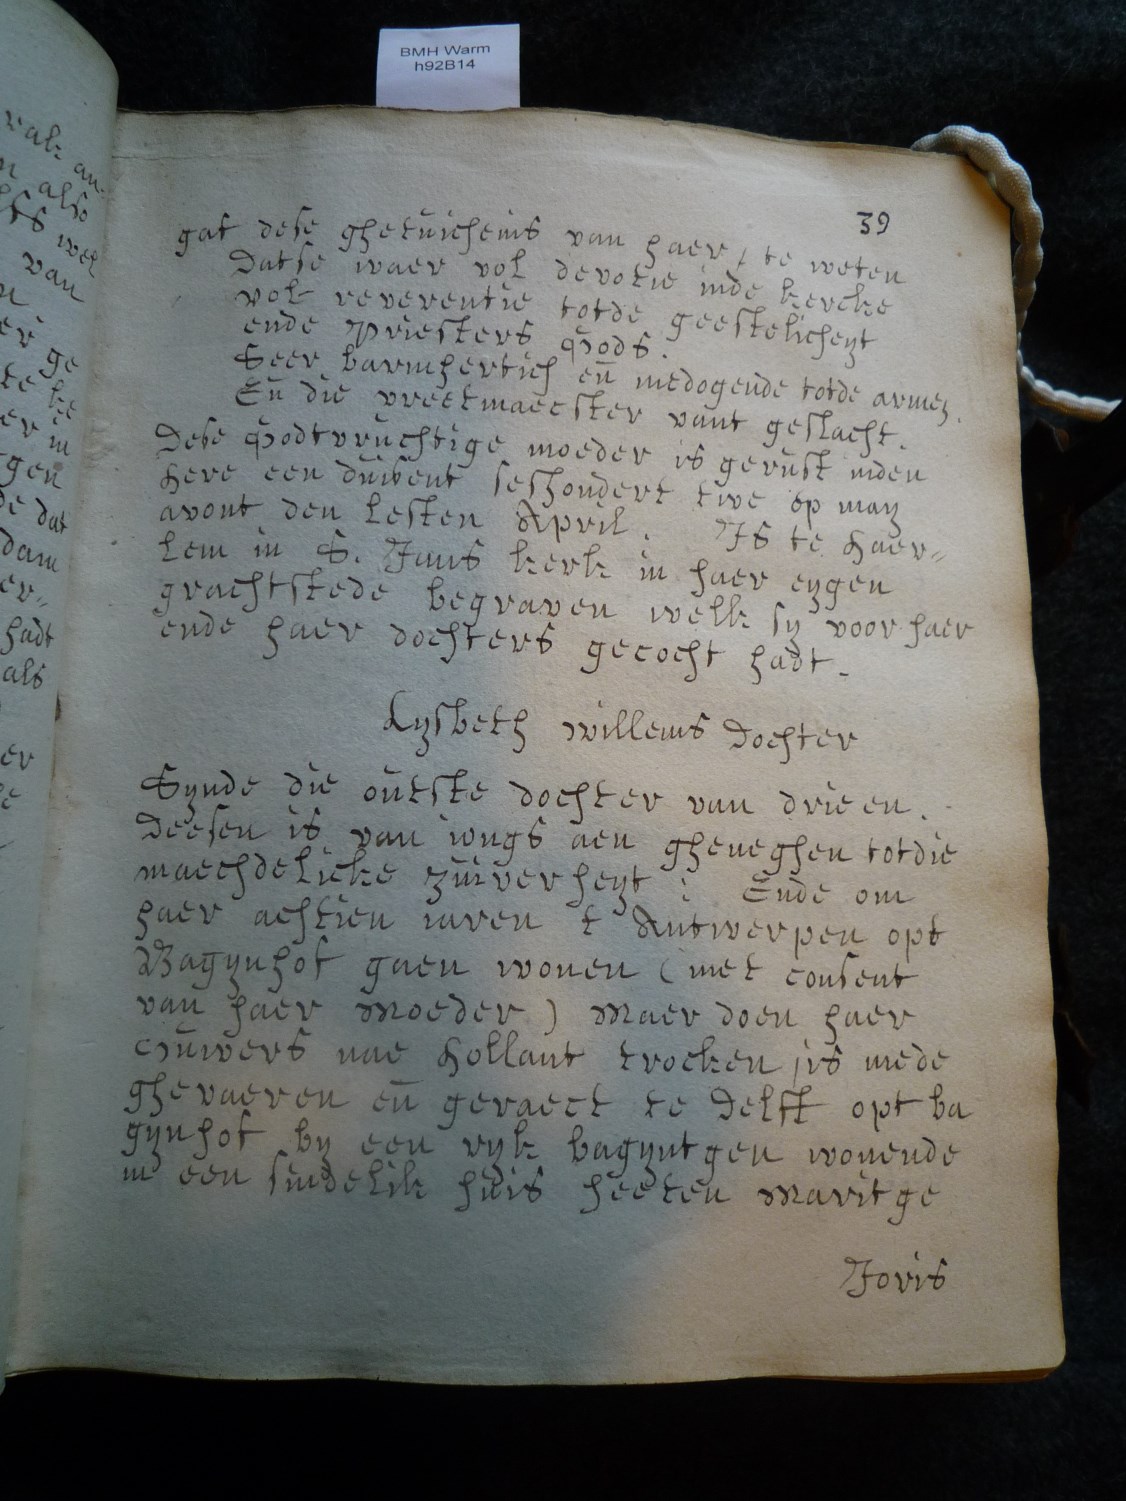 BMH Warm
h92B14
39
gaf dese ghetuichenis van haer, te weten
Datse waer vol devotie inde kercke
vol reverentie totde geestelicheyt
ende Priesters Gods.
Seer barmhertich eñ medogende totde armen.
Eñ die vreetmaecster vant geslacht.
Dese Godtvruchtige moeder is gerust inden
Here een duisent seshondert twe op may
avont den lesten April. Is te Haer-
lem in S. Jans kerk in haer eygen
grachtstede begraven welk sy voor haer
ende haer dochters gecocht hadt.
Lysbeth willems Dochter
Synde die outste dochter van drieen.
Deesen is van iongs aen gheneghen totdie
maechdelicke zuiverheyt: Ende om
haer achtien iaren t Antwerpen opt
Bagynhof gaen wonen (met consent
van haer Moeder) Maer doen haer
ouwers nae Hollant trocken, is mede
ghevaeren eñ geraect te Delft opt ba
gynhof by een ryk bagyntgen wonende
in een sindelik huis heeten Maritge
Joris
ralk an-
n also
wel
van
n
er ge
te ke
er in
gen
de dat
dam
er-
hadt
als
er